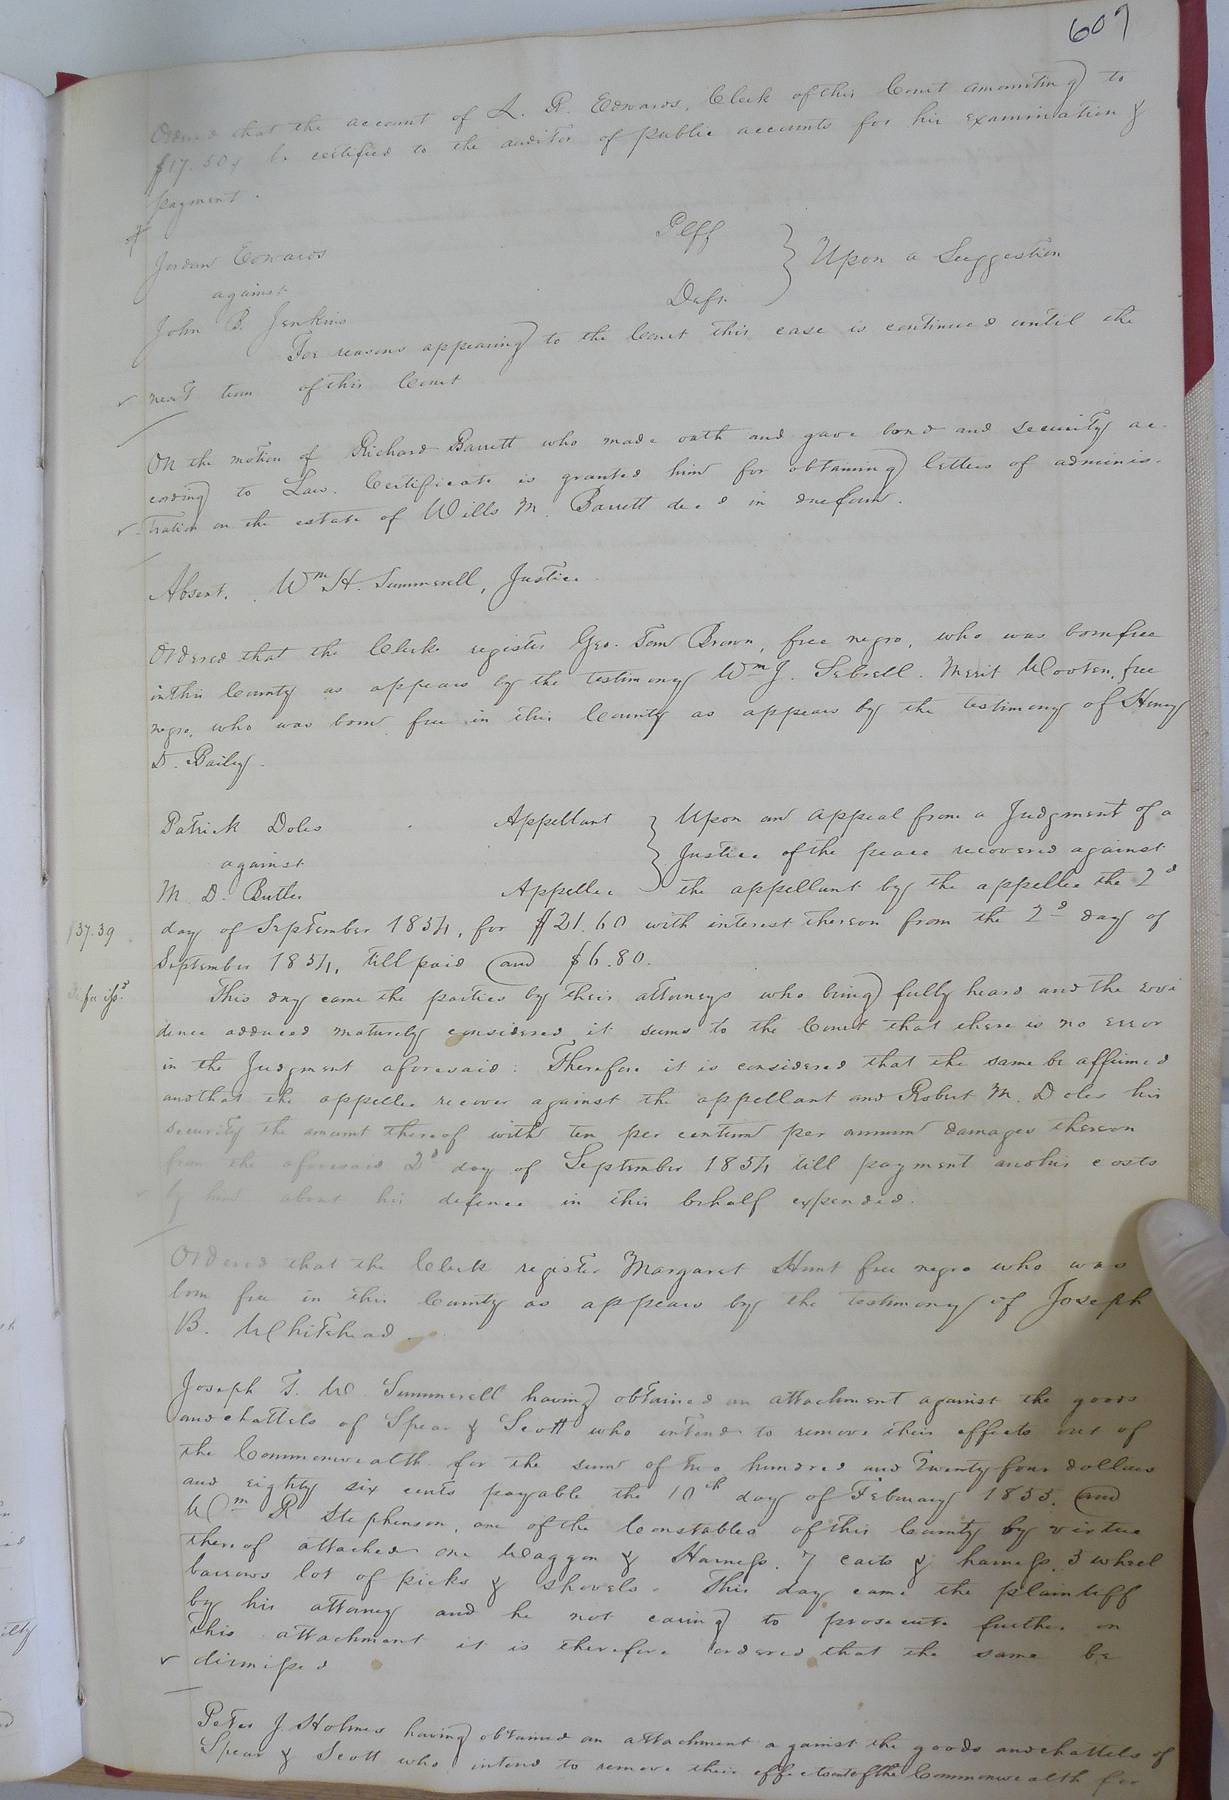 607
Ordered that the account of L. R. Edwards, Clerk of this Court amounting to
$17.50 be certified to the auditor of public accounts for his examination &
payment.
Jordan Edwards Plff
against } Upon a Suggestion
John B. Jenkins Deft.
For reasons appearing to the Court this case is continued until the
next term of this Court
On the motion of Richard Barrett who made oath and gave bond and security ac-
cording to Law. Certificate is granted him for obtaining letters of adminis-
tration on the estate of Wills M. Barrett dec d in due form.
Absent. Wm H. Summerell, Justice
Ordered that the Clerk register Geo. Tom Brown, free negro, who was born free
in this County as appears by the testimony Wm J. Sebrell. Merit Wooten, free
negro, who was born free in this County as appears by the testimony of Henry
D. Baily.
Patrick Doles Appellant } Upon an appeal from a Judgment of a
against Justice of the peace recovered against
M. D. Butler Appellee the appellant by the appellee the 2d
$37.39 day of September 1854, for $21.60 with interest thereon from the 2d day of
September 1854, till paid and $6.80.
fa iss. This day came the parties by their attorneys who being fully heard and the evi
dence adduced maturely considered it seems to the Court that there is no error
in the Judgment aforesaid: Therefore it is considered that the same be affirmed
and that the appellee recover against the appellant and Robert M. Doles his
security the amount thereof with ten per centum per annum damages thereon
from the aforesaid 2d day of September 1854 till payment and his costs
by him about his defence in this behalf expended.
Ordered that the Clerk register Margaret Hunt free negro who was
born free in this County as appears by the testimony of Joseph
B. Whitehead.
Joseph T. W. Summerell having obtained an attachment against the goods
and chattels of Spear & Scott who intend to remove their effects out of
the Commonwealth for the sum of two hundred and Twenty four dollars
and eighty six cents payable the 10th day of February 1855. and
Wm R Stephenson, one of the Constables of this County by virtue
thereof attached one Waggon & Harness, 7 carts & harness, 3 wheel
barrows lot of picks & shovels. This day came the plaintiff
by his attorney and he not caring to prosecute further on
this attachment it is therefore ordered that the same be
dismissed
Peter J. Holmes having obtained an attachment against the goods and chattels of
Spear & Scott who intend to remove their effects out of the Commonwealth for